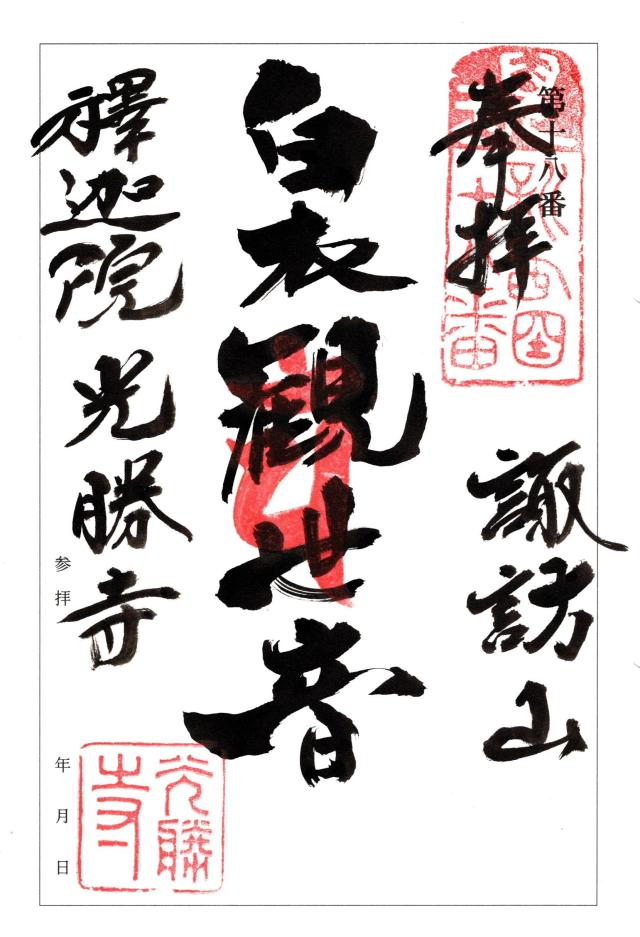 第十八番
奉拝
諏訪山
白衣観世音
釋迦院 光勝寺
参拝
年 月 日
光勝寺